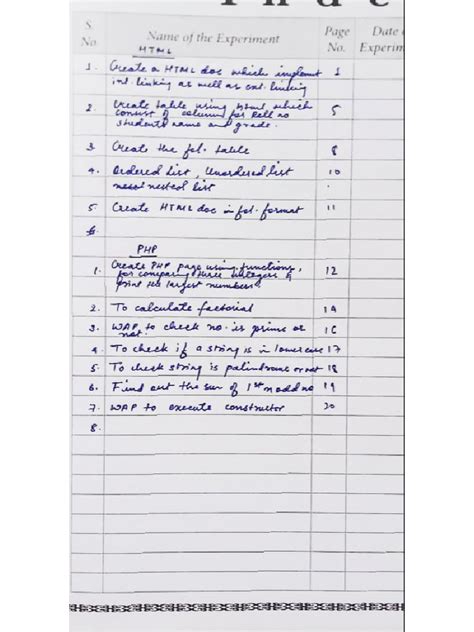 S. No
Name of the Experiment
Page No.
Date
Experim
HTML
1. Create a HTML doc which implement 1
int. linking as well as ext. linking
2. Create table using html which 5
consist of column for Roll no
students name and grade.
3. Create the fol. table 8
4. Ordered list, Unordered list 10
nested list
5. Create HTML doc in fol. format 11
6.
PHP
1. Create PHP page using functions, 12
for comparing three integers &
print the largest number
2. To calculate factorial 14
3. WAP to check no. is prime or 16
not.
4. To check if a string is in lowercase 17
5. To check string is palindrome or not 18
6. Find out the sum of 1st n odd no 19
7. WAP to execute constructor 20
8.